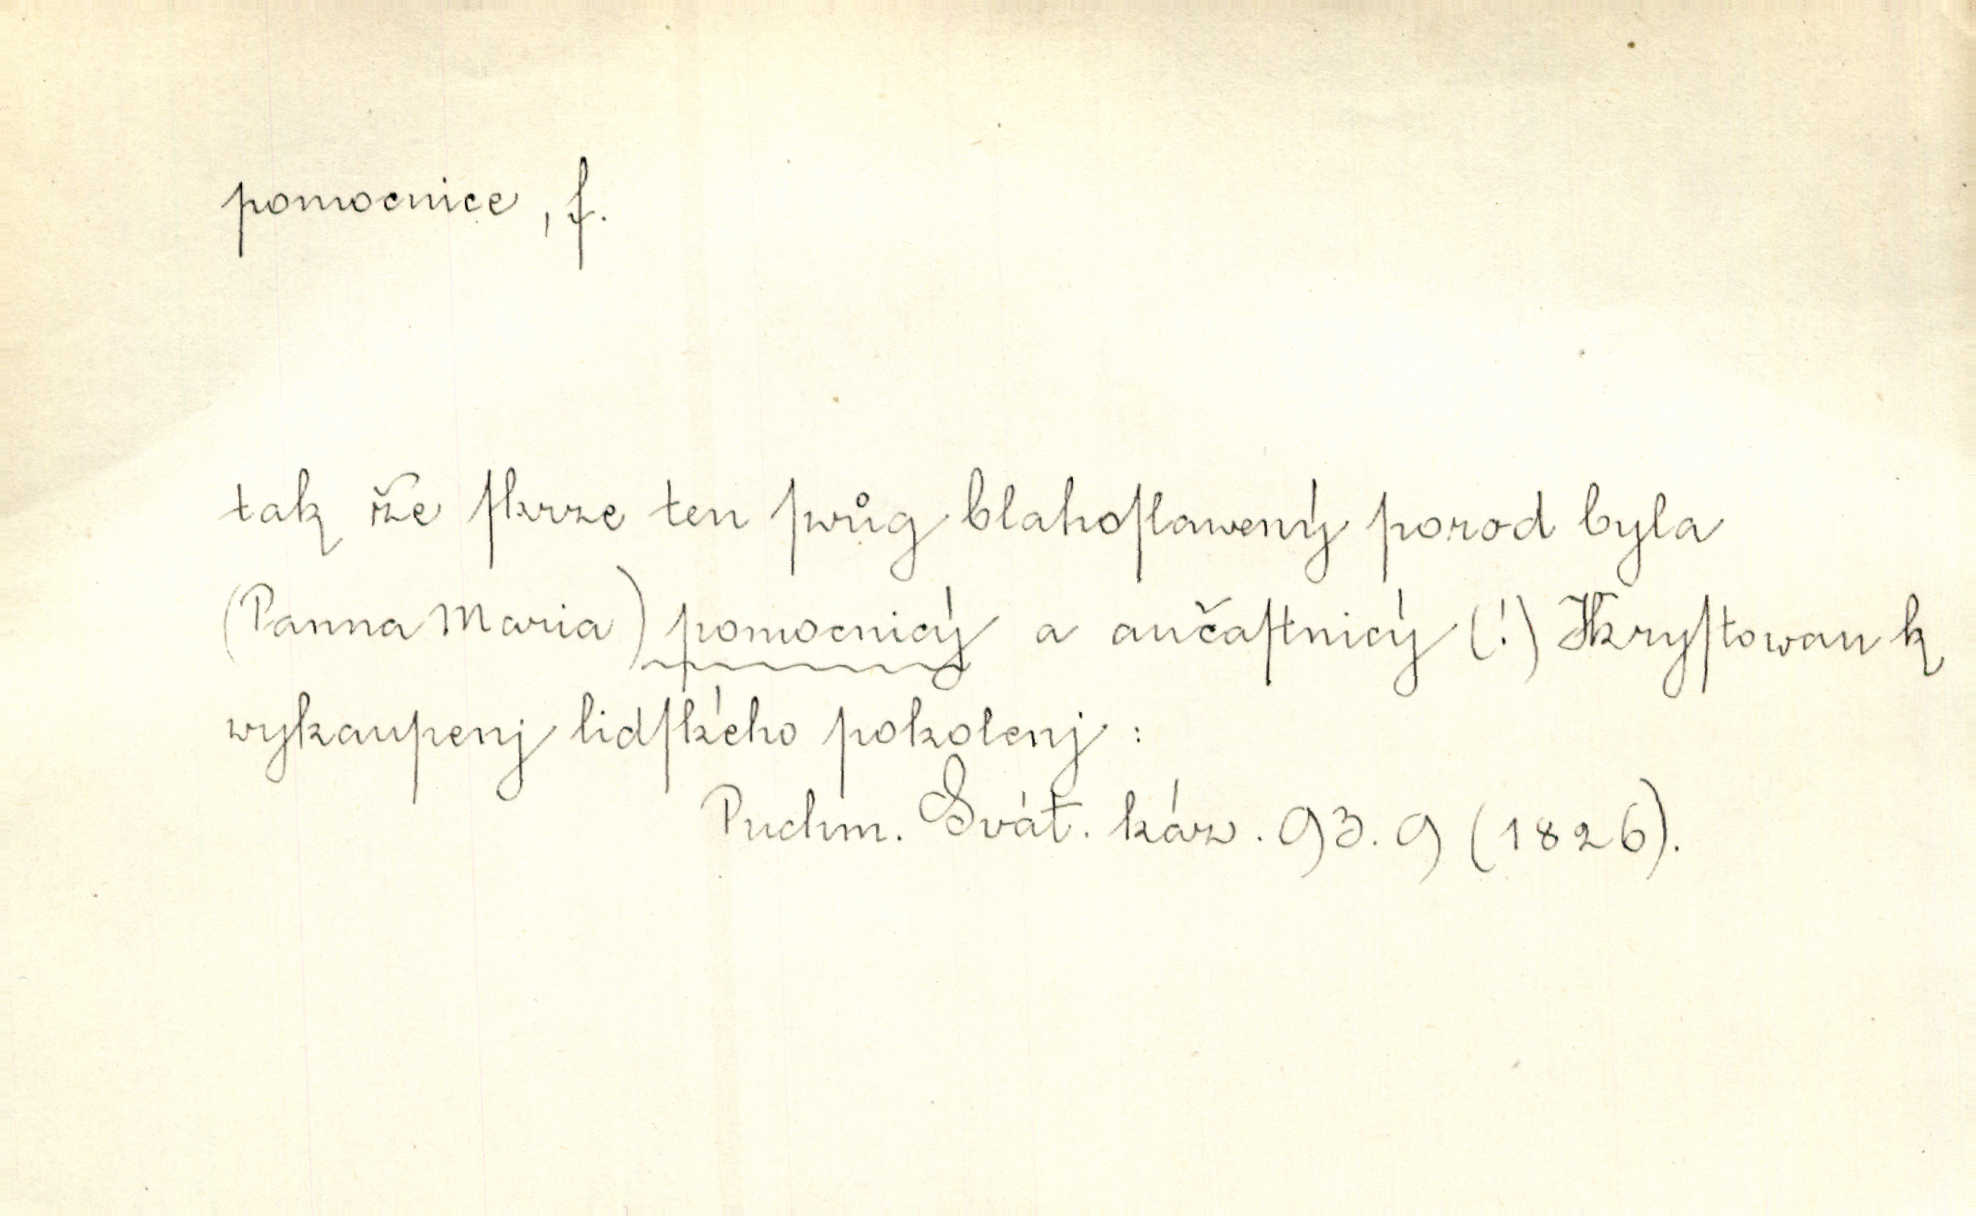 pomocnice, f.
tak že ſkrze ten ſwůg blahoſlawený porod byla
(Panna Maria) pomocnicý a aučaſtnicý (!) Kryſtowau k
wykaupenj lidſkého pokolenj:
Puchm. Svát. káz. 93. 9 (1826).